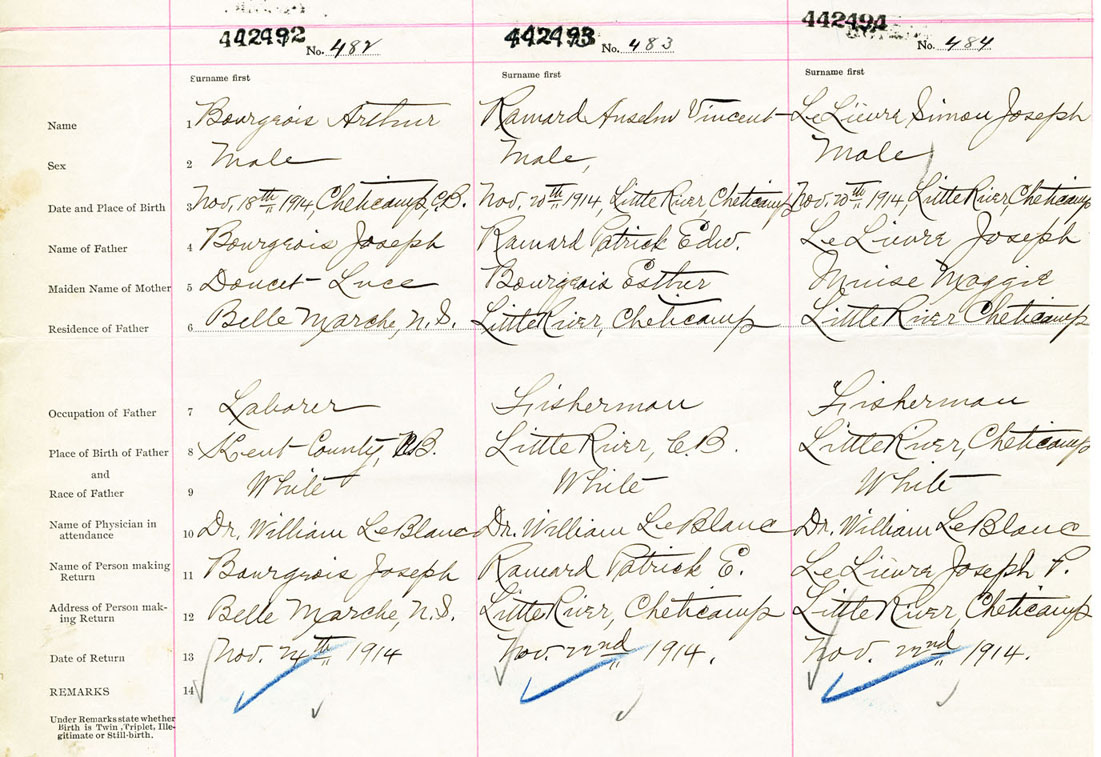 442492 No. 482 442493 No. 483 442494 No. 484
Surname first Surname first Surname first
Name 1 Bourgeois Arthur Ramard Anselm Vincent LeLievre Simon Joseph
Sex 2 Male Male, Male
Date and Place of Birth 3 Nov. 18th 1914, Cheticamp, C.B. Nov. 20th 1914, Little River, Cheticamp Nov. 20th 1914, Little River, Cheticamp
Name of Father 4 Bourgeois Joseph Ramard Patrick Edw. LeLievre Joseph
Maiden Name of Mother 5 Doucet Luce Bourgeois Esther Muise Maggie
Residence of Father 6 Belle Marche, N.S. Little River, Cheticamp Little River Cheticamp
Occupation of Father 7 Laborer Fisherman Fisherman
Place of Birth of Father 8 Kent County, N.B. Little River, C.B. Little River, Cheticamp
and
Race of Father 9 White White White
Name of Physician in
attendance 10 Dr. William LeBlanc Dr. William LeBlanc Dr. William LeBlanc
Name of Person making
Return 11 Bourgeois Joseph Ramard Patrick E. LeLievre Joseph P.
Address of Person mak-
ing Return 12 Belle Marche, N.S. Little River, Cheticamp Little River, Cheticamp
Date of Return 13 Nov. 24th 1914 Nov. 22nd 1914. Nov. 22nd 1914.
REMARKS 14
Under Remarks state whether
Birth is Twin, Triplet, Ille-
gitimate or Still-birth.